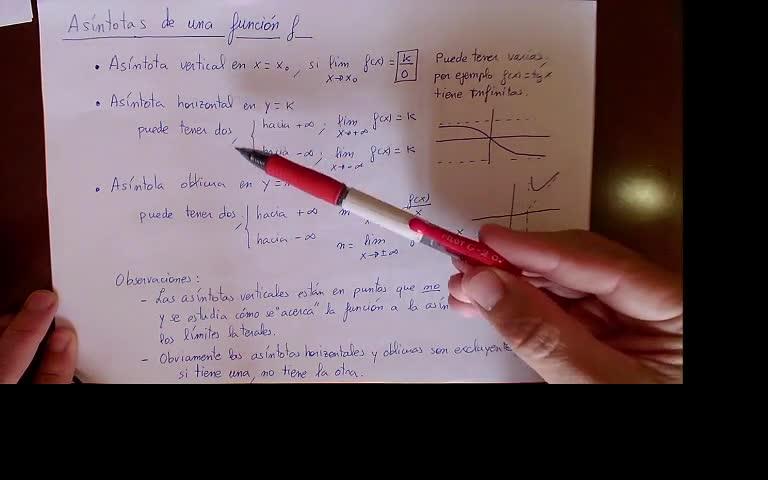 Asíntotas de una función f
• Asíntota vertical en x = x₀, si lim f(x) = k/0
x→x₀
Puede tener varias,
por ejemplo f(x)=tg x
tiene infinitas.
• Asíntota horizontal en y = k
puede tener dos,
hacia +∞ ; lim f(x) = k
x→+∞
hacia -∞ ; lim f(x) = k
x→-∞
• Asíntota oblicua en y =
puede tener dos,
hacia +∞
hacia -∞
f(x)
x
n = lim
x→±∞
PILOT G-2 0
Observaciones:
- Las asíntotas verticales están en puntos que no
y se estudia cómo se "acerca" la función a la asín
los límites laterales.
- Obviamente las asíntotas horizontales y oblicuas son excluyente
si tiene una, no tiene la otra.